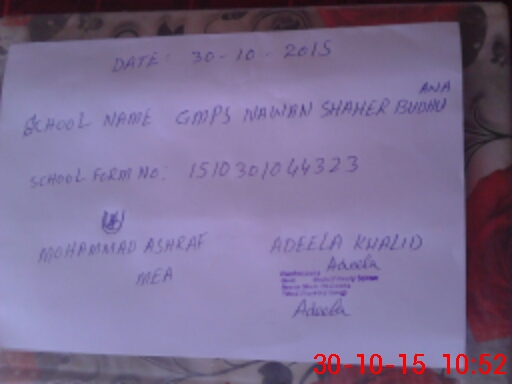 DATE: 30-10-2015
ANA
SCHOOL NAME GMPS NAWAN SHAHER BUDHU
SCHOOL FORM NO: 1510301044323
MOHAMMAD ASHRAF
MEA
ADEELA KHALID
Adeela
Adeela
30-10-15 10:52